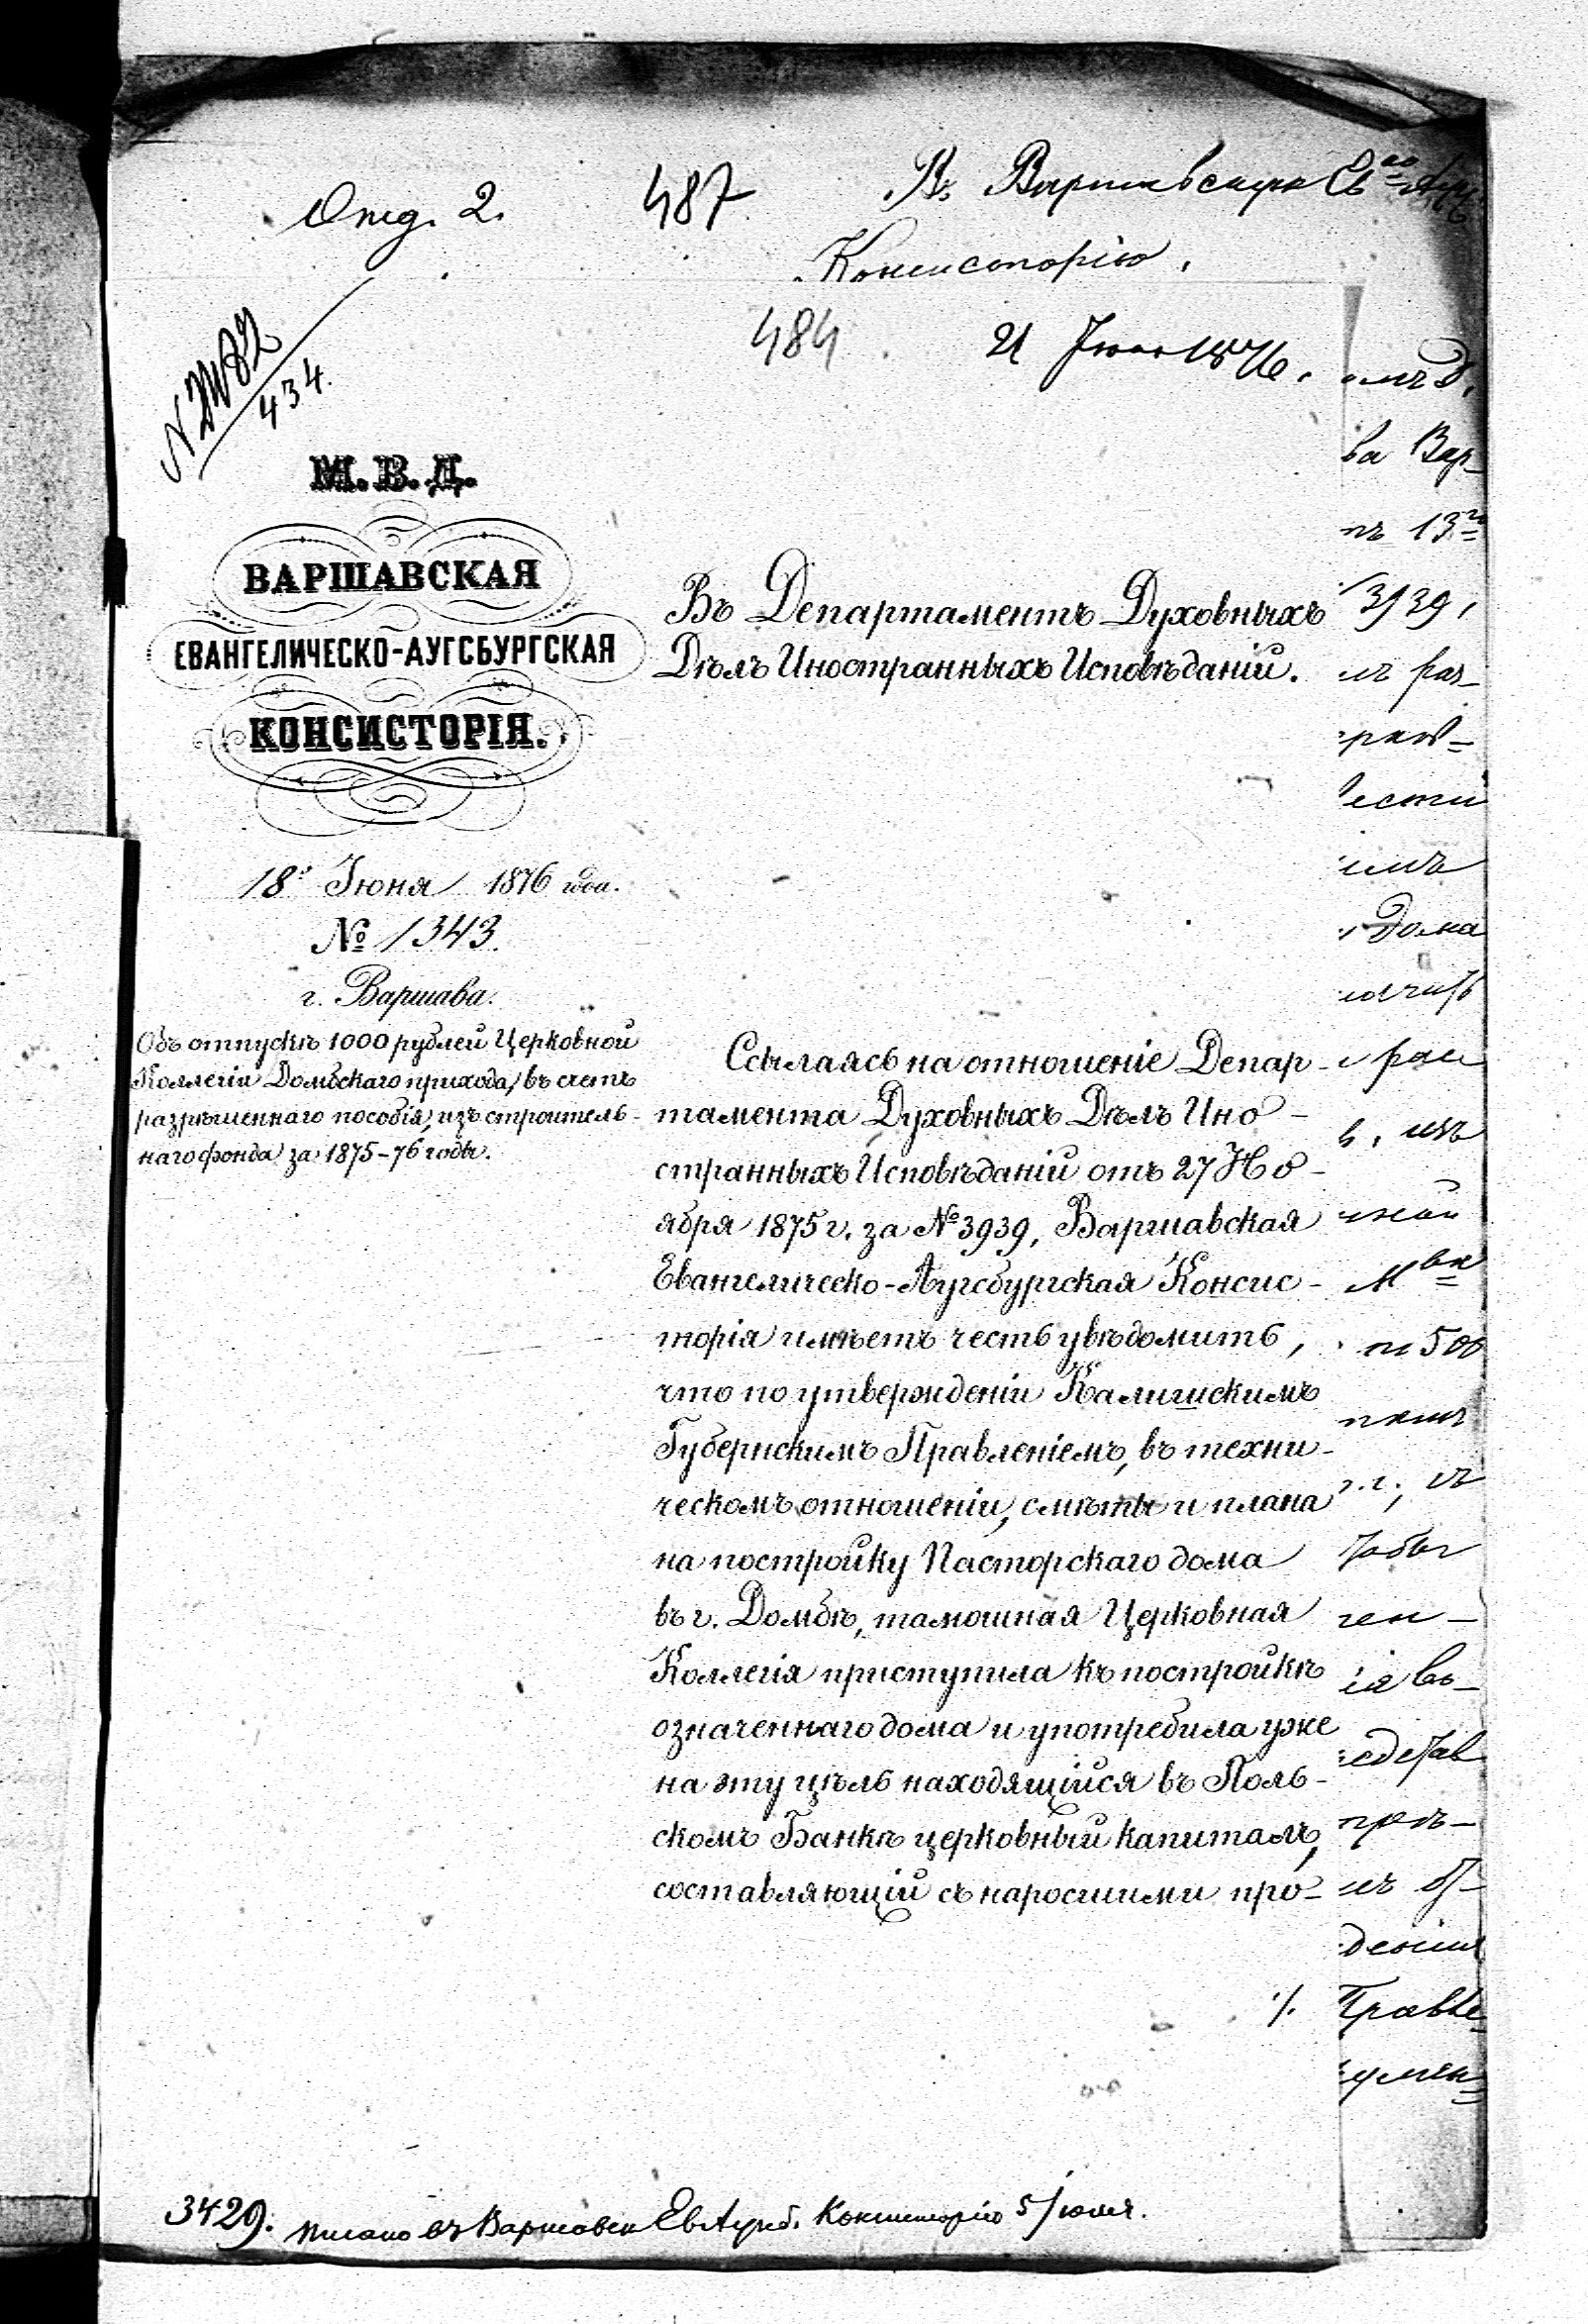 Отд. 2.
487
Въ Варшавскую Ев.
Консисторію.
484
21 1876.
434.
М. В. Д.
ВАРШАВСКАЯ
ЕВАНГЕЛИЧЕСКО-АУГСБУРГСКАЯ
КОНСИСТОРІЯ.
18 Іюня 1876 года.
№ 1343.
г. Варшава.
Объ отпускѣ 1000 рублей Церковной
Коллегіи Домбскаго прихода, въ счетъ
разрѣшеннаго пособія, изъ строитель-
наго фонда за 1875-76 годы.
Въ Департаментъ Духовныхъ
Дѣлъ Иностранныхъ Исповѣданій.
Ссылаясь на отношеніе Депар-
тамента Духовныхъ Дѣлъ Ино-
странныхъ Исповѣданій отъ 27 Но-
ября 1875 г. за № 3939, Варшавская
Евангелическо-Аугсбургская Консис-
торія имѣетъ честь увѣдомить,
что по утвержденіи Калишскимъ
Губернскимъ Правленіемъ, въ техни-
ческомъ отношеніи, смѣты и плана
на постройку Пасторскаго дома
въ г. Домбѣ, тамошная Церковная
Коллегія приступила къ постройкѣ
означеннаго дома и употребила уже
на эту цѣль находящійся въ Поль-
скомъ Банкѣ церковный капиталъ,
составляющій съ наросшими про-
./.
ва Вар-
13го
3939,
раз-
дома
500
3429. писано въ Варшавск Ев Аугсб. Консисторію 5 Іюля.